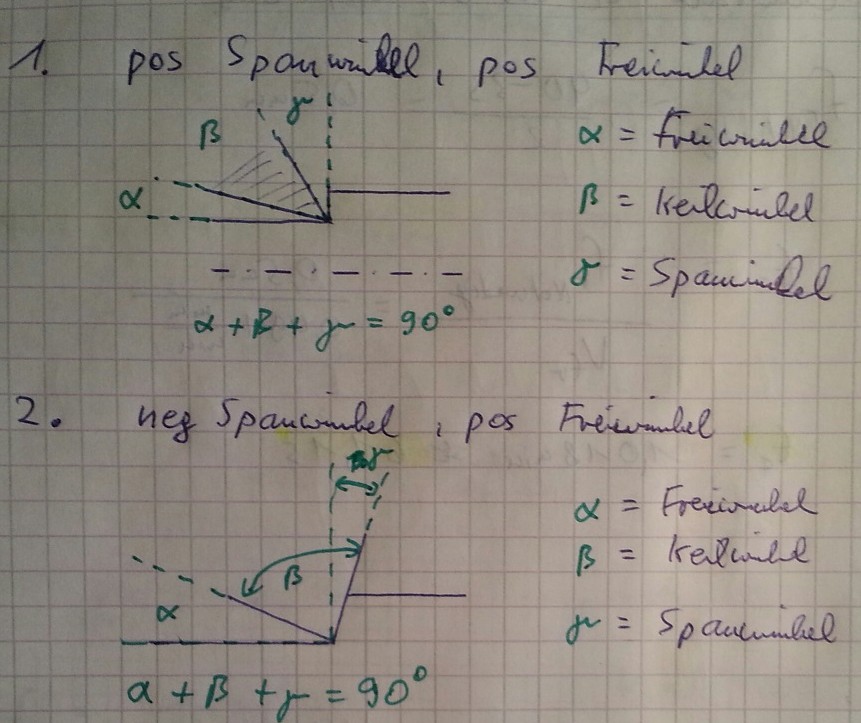 1. pos Spanwinkel, pos Freiwinkel
γ
β
α = Freiwinkel
α
β = Keilwinkel
γ = Spanwinkel
α + β + γ = 90°
2. neg Spanwinkel, pos Freiwinkel
γ
α = Freiwinkel
β
β = Keilwinkel
α
γ = Spanwinkel
α + β + γ = 90°